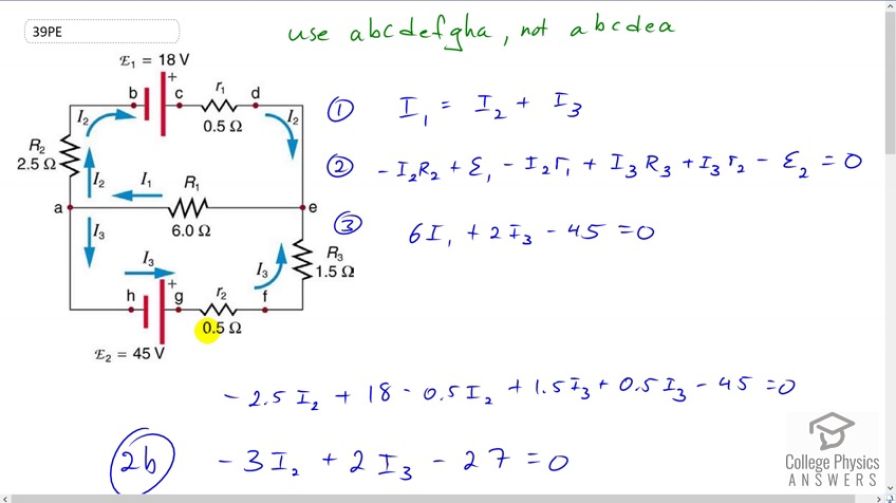 39PE
use abcdefgha, not abcdea
ℰ₁ = 18 V
+
b c r₁ d
I₂ I₂
0.5 Ω
R₂
2.5 Ω
I₂ I₁ R₁
a e
6.0 Ω
I₃
R₃
1.5 Ω
I₃ I₃
+
h g r₂ f
0.5 Ω
ℰ₂ = 45 V
① I₁ = I₂ + I₃
② - I₂R₂ + ℰ₁ - I₂r₁ + I₃R₃ + I₃r₂ - ℰ₂ = 0
③ 6I₁ + 2I₃ - 45 = 0
- 2.5 I₂ + 18 - 0.5 I₂ + 1.5 I₃ + 0.5 I₃ - 45 = 0
2b - 3 I₂ + 2 I₃ - 27 = 0
College Physics
ANSWERS